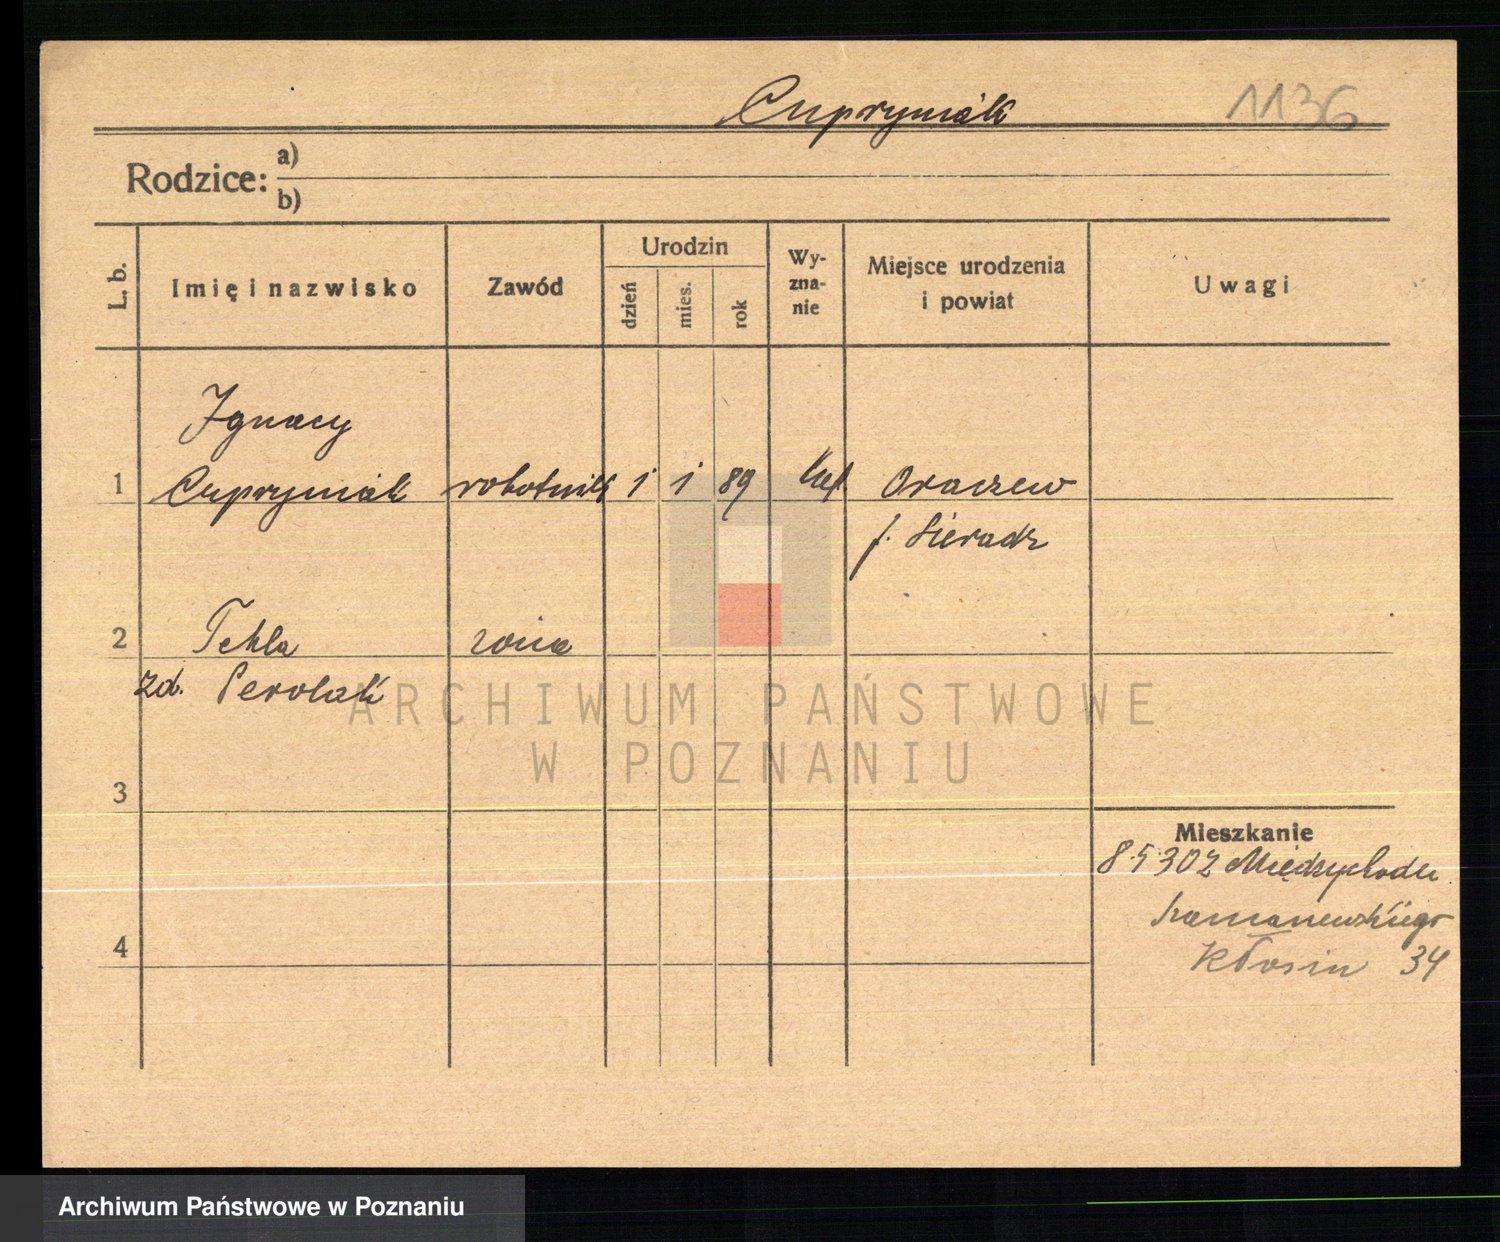 Cupryniak 1136
Rodzice: a)
b)
L. b. Imię i nazwisko Zawód Urodzin dzień mies. rok Wy-zna-nie Miejsce urodzenia i powiat Uwagi
Ignacy
1 Cupryniak robotnik 1 1 89 kat Oraczew
p. Sieradz
2 Tekla żona
zd. Perolak
ARCHIWUM PAŃSTWOWE
W POZNANIU
3
Mieszkanie
8.5 30 z Międzychodu
34
4
Archiwum Państwowe w Poznaniu